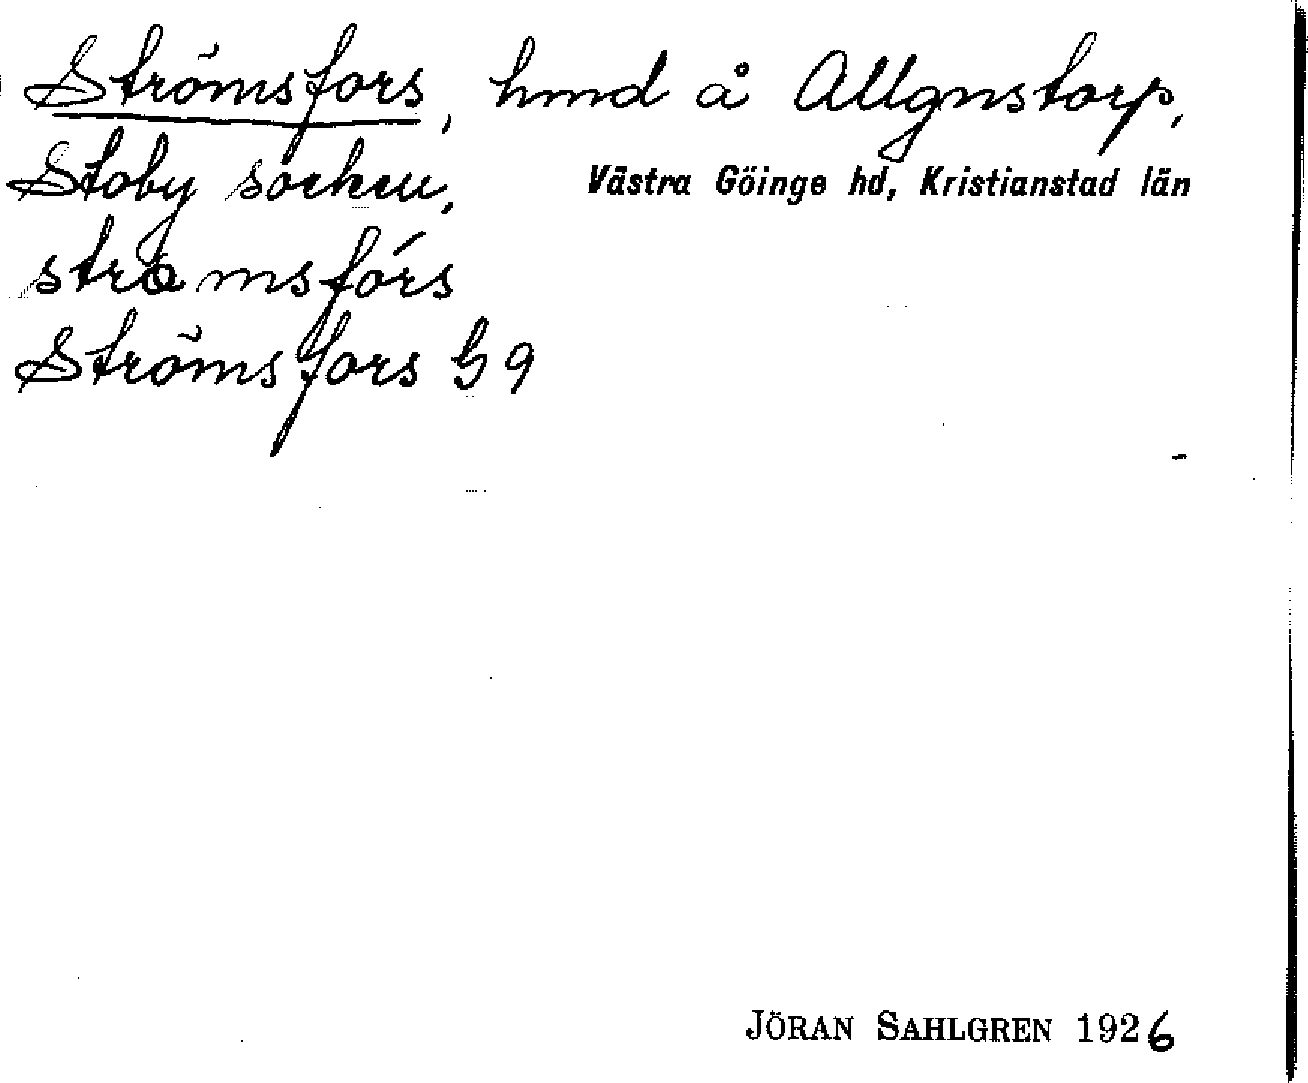 Strömsfors, hmd å Allgnstorp,
Stoby socken, Västra Göinge hd, Kristianstad län
strömsfórs
Strömsfors G9
JÖRAN SAHLGREN 1926